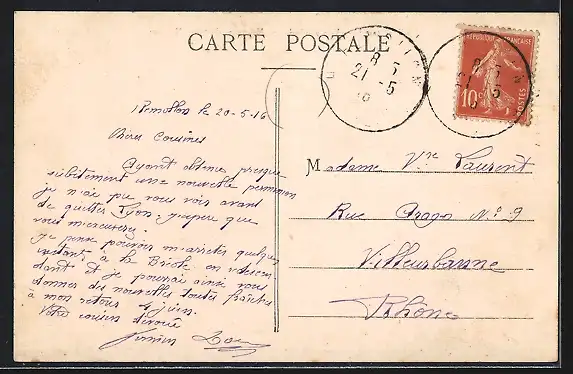 CARTE POSTALE
RÉPUBLIQUE FRANÇAISE
10c
POSTES
8 5
21 - 5
16
le 20-5-16
Chères Cousines
Ayant obtenu presque
subitement une nouvelle permission
je n'ai pu vous voir avant
de quitter Lyon, j'espère que
vous m'excuserez.
Je pense pouvoir m'arrêter quelques
instants à la en redescen
dant et je pourrai ainsi vous
donner des nouvelles toutes fraîches
à mon retour 4 juin.
Votre cousin dévoué
Madame Vve Laurent
Rue Arago No 9
Villeurbanne
Rhône